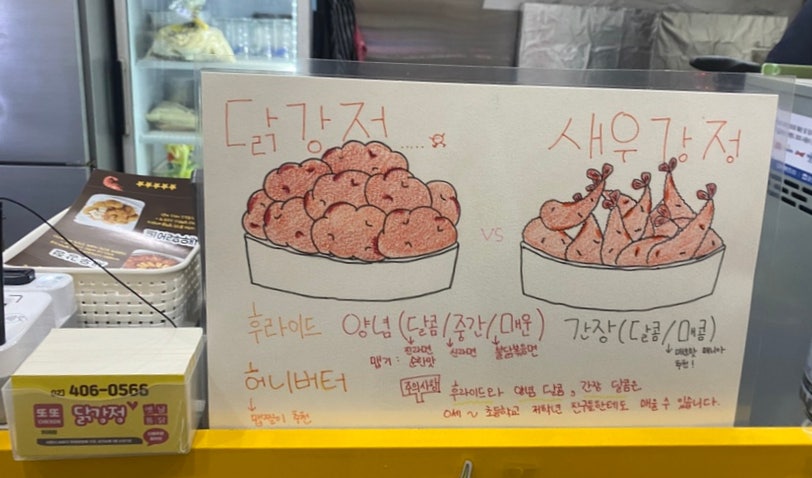 닭강정.....
새우강정
vs
후라이드 양념(달콤/중간/매운) 간장(달콤/매콤)
맵기 : 진라면 순한맛
신라면
불닭볶음면
추천!
허니버터
맵찔이 추천
주의사항
후라이드와 양념 달콤, 간장 달콤은
0세 ~ 초등학교 저학년 친구들한테도 매울 수 있습니다.
02) 406-0566
또또 닭강정
CHICKEN
옛날통닭